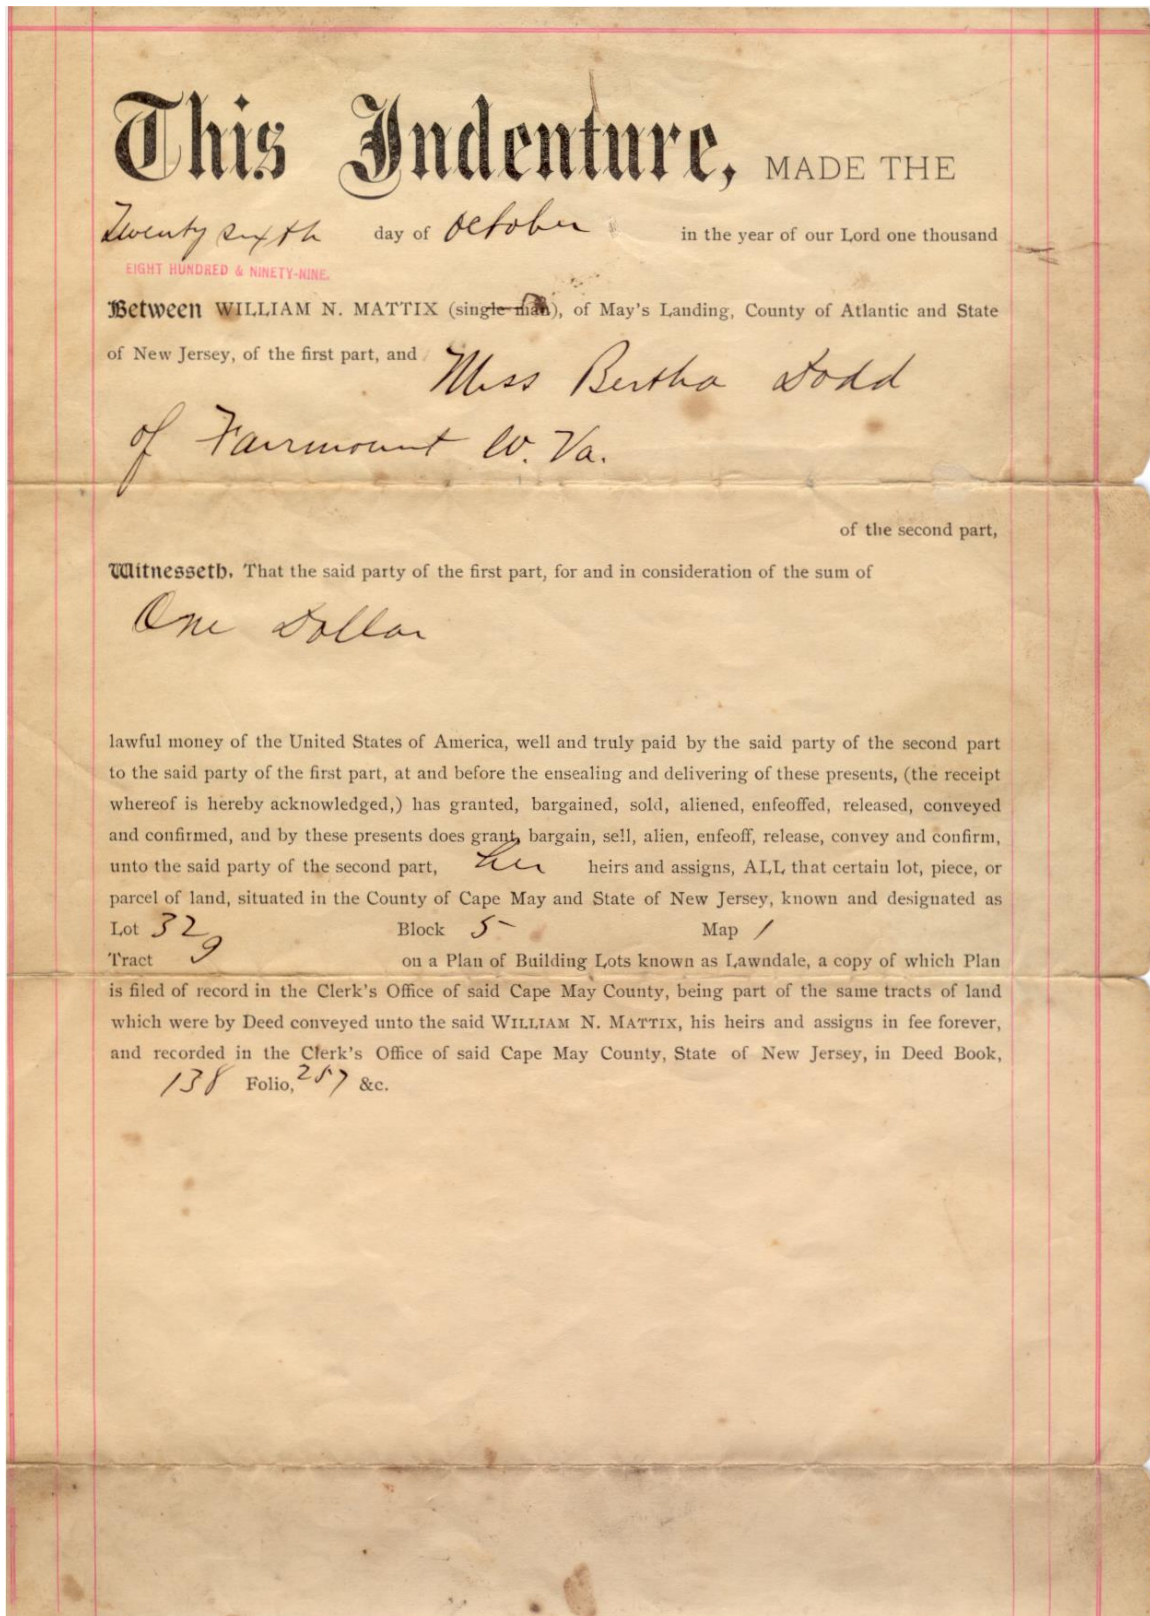 This Indenture, MADE THE
Twenty sixth day of October in the year of our Lord one thousand
EIGHT HUNDRED & NINETY-NINE.
Between WILLIAM N. MATTIX (single man), of May's Landing, County of Atlantic and State
of New Jersey, of the first part, and
Miss Bertha Dodd
of Fairmount W. Va.
of the second part,
Witnesseth, That the said party of the first part, for and in consideration of the sum of
One Dollar
lawful money of the United States of America, well and truly paid by the said party of the second part
to the said party of the first part, at and before the ensealing and delivering of these presents, (the receipt
whereof is hereby acknowledged,) has granted, bargained, sold, aliened, enfeoffed, released, conveyed
and confirmed, and by these presents does grant, bargain, sell, alien, enfeoff, release, convey and confirm,
unto the said party of the second part, her heirs and assigns, ALL that certain lot, piece, or
parcel of land, situated in the County of Cape May and State of New Jersey, known and designated as
Lot 32 Block 5 Map 1
Tract 9 on a Plan of Building Lots known as Lawndale, a copy of which Plan
is filed of record in the Clerk's Office of said Cape May County, being part of the same tracts of land
which were by Deed conveyed unto the said WILLIAM N. MATTIX, his heirs and assigns in fee forever,
and recorded in the Clerk's Office of said Cape May County, State of New Jersey, in Deed Book,
138 Folio, 257 &c.